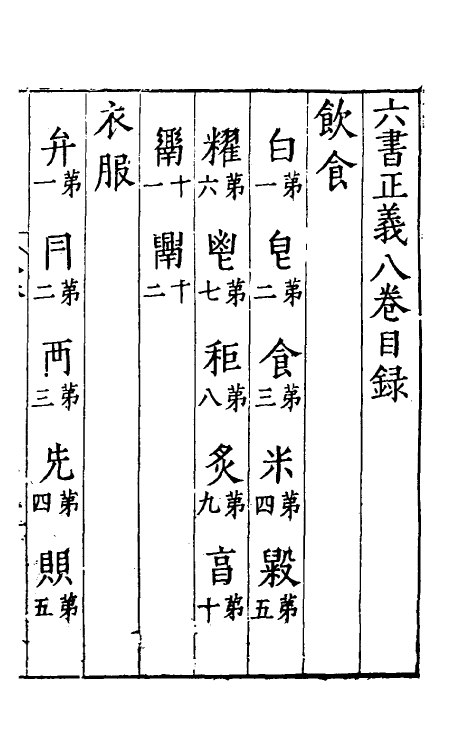 六書正義八卷目録
飲食
白第一 皀第二 食第三 米第四 毇第五
糶第六 鬯第七 秬第八 炙第九 亯第十
十一 十二
衣服
弁第一 冃第二 襾第三 兂第四 第五